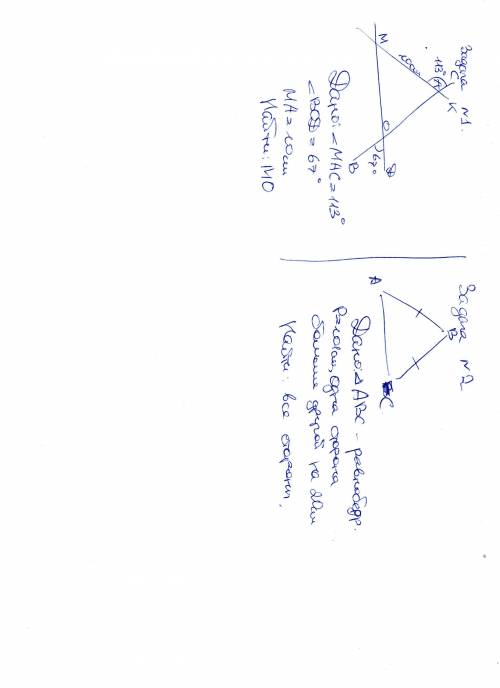 Задача №1.
M
10см
113°
C
A
K
O
B
67°
D
Дано: <MAC=113°
<BOD=67°
MA=10см
Найти: MO
Задача №2
A
B
C
Дано: △ABC - равнобедр.
одна сторона
больше другой на
Найти: все стороны.